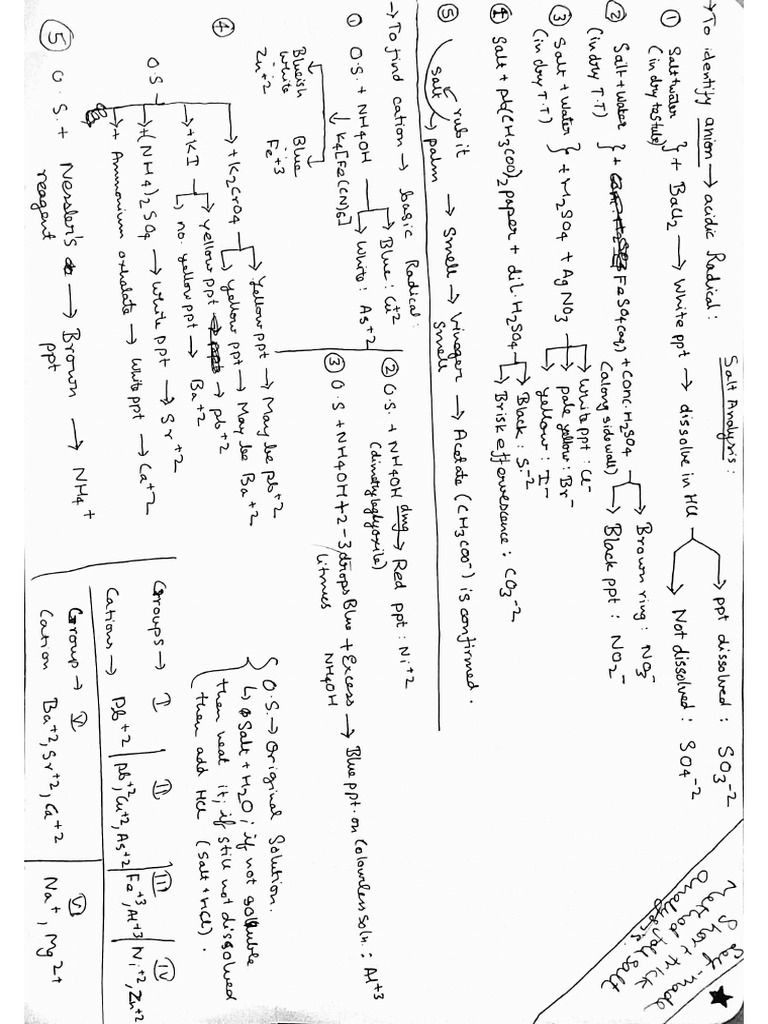 Salt Analysis:
→To identify anion → acidic Radical:
① Salt+water (in dry testtube) } + BaCl2 → white ppt → dissolve in HCl → ppt dissolved : SO3^-2
→ Not dissolved : SO4^-2
② Salt+water (in dry T.T) } + FeSO4(aq) + conc.H2SO4 (along side wall) → Brown ring : NO3^-
→ Black ppt : NO2^-
③ Salt + water (in dry T.T) } + H2SO4 + AgNO3 → white ppt : Cl^-
→ pale yellow : Br^-
→ yellow : I^-
④ Salt + pb(CH3COO)2 paper + dil. H2SO4 → Black : S^-2
→ Brisk effervescence : CO3^-2
⑤ salt rub it palm → Smell → Vinegar smell → Acetate (CH3COO^-) is confirmed.
→To find cation → basic Radical:
① O.S. + NH4OH → Blue : Cu+2
→ White : As+2
↓ K4[Fe2(CN)6]
Blueish white Zn+2
Blue Fe+3
② O.S. + NH4OH dmg → Red ppt : Ni+2
(dimetylaglyoxile)
③ O.S + NH4OH + 2-3 drops Blue litmues + Excess NH4OH → Blue ppt. on Colourless soln. : Al+3
④ O.S
+ K2CrO4 → Yellow ppt → May be pb+2
→ Yellow ppt → May be Ba+2
+ KI → yellow ppt → pb+2
→ no. yellow ppt → Ba+2
+ (NH4)2SO4 → white ppt → Sr+2
+ Ammonium oxhalate → White ppt → Ca+2
⑤ O.S. + Nessler's reagent → Brown ppt → NH4+
{ O.S. → Original Solution.
↳ Salt + H2O ; if not soluble
then heat it; if still not dissolved
then add HCl (salt+HCl).
Groups → I | II | III | IV
Cations → Pb+2 | pb+2, Cu+2, As+2 | Fe+3, Al+3 | Ni+2, Zn+2
Group → V | VI
Cation Ba+2, Sr+2, Ca+2 | Na+, Mg2+
Self-made
Short trick
method
analysis salt